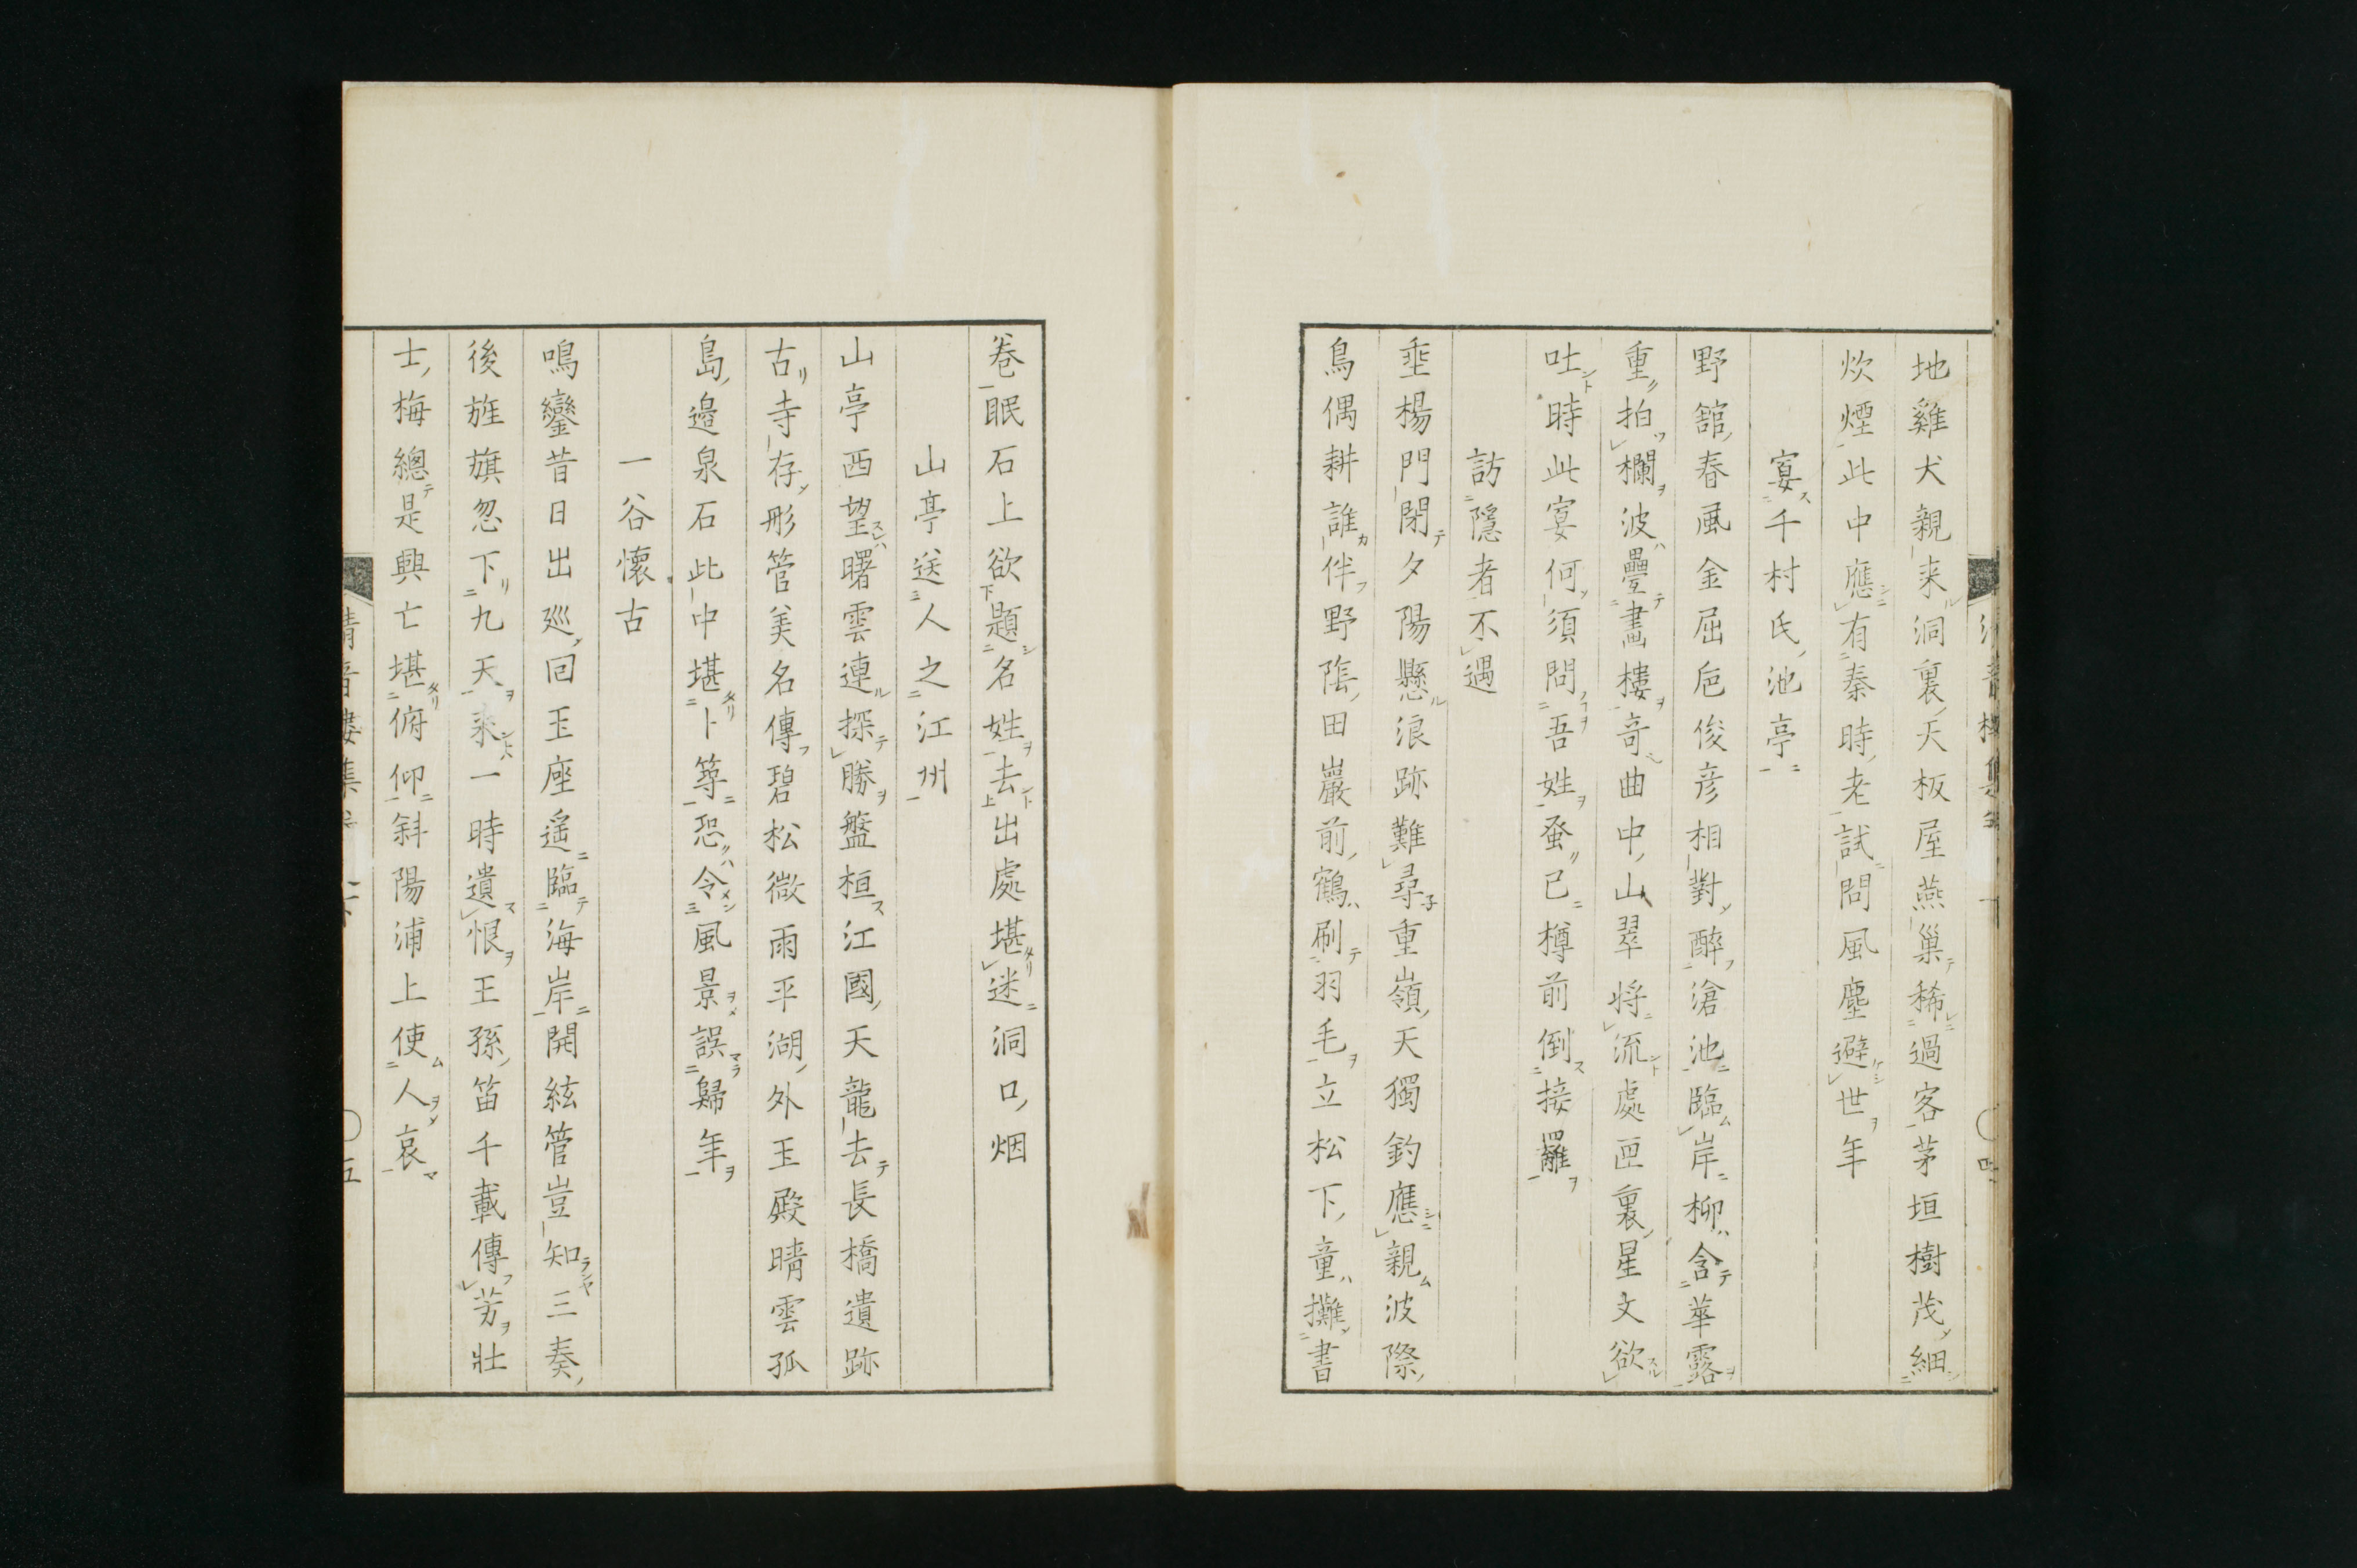 地雞犬親来洞裏天板屋燕巢稀過客茅垣樹茂細
炊煙此中應有秦時老試問風塵避世年
宴千村氏池亭
野舘春風金屈巵俊彦相對醉滄池臨岸柳含華露
重拍欄波疊畵樓奇曲中山翠将流處匣裏星文欲
吐時此宴何須問吾姓蚤已樽前倒接羅
訪隱者不遇
垂楊門閉夕陽懸浪跡難尋重嶺天獨釣應親波際
鳥偶耕誰伴野陰田巖前鶴刷羽毛立松下童攤書
巻眠石上欲題名姓去出處堪迷洞口烟
山亭送人之江州
山亭西望曙雲連探勝盤桓江國天龍去長橋遺跡
古寺存形管美名傳碧松微雨平湖外玉殿晴雲孤
島邉泉石此中堪卜築恐令風景誤歸年
一谷懷古
鳴鑾昔日出巡回玉座遥臨海岸開絃管豈知三奏
後旌旗忽下九天来一時遺恨王孫笛千載傳芳壯
士梅總是興亡堪俯仰斜陽浦上使人哀
五